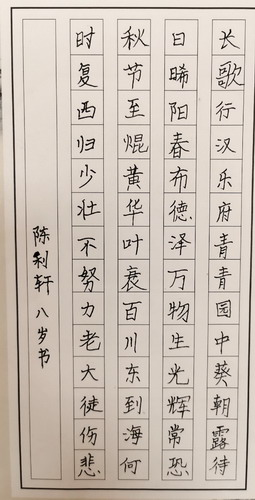 长歌行汉乐府青青园中葵朝露待
日晞阳春布德泽万物生光辉常恐
秋节至焜黄华叶衰百川东到海何
时复西归少壮不努力老大徒伤悲
陈利轩八岁书